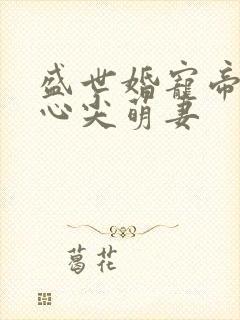 盛世婚宠帝
心尖萌妻
葛花